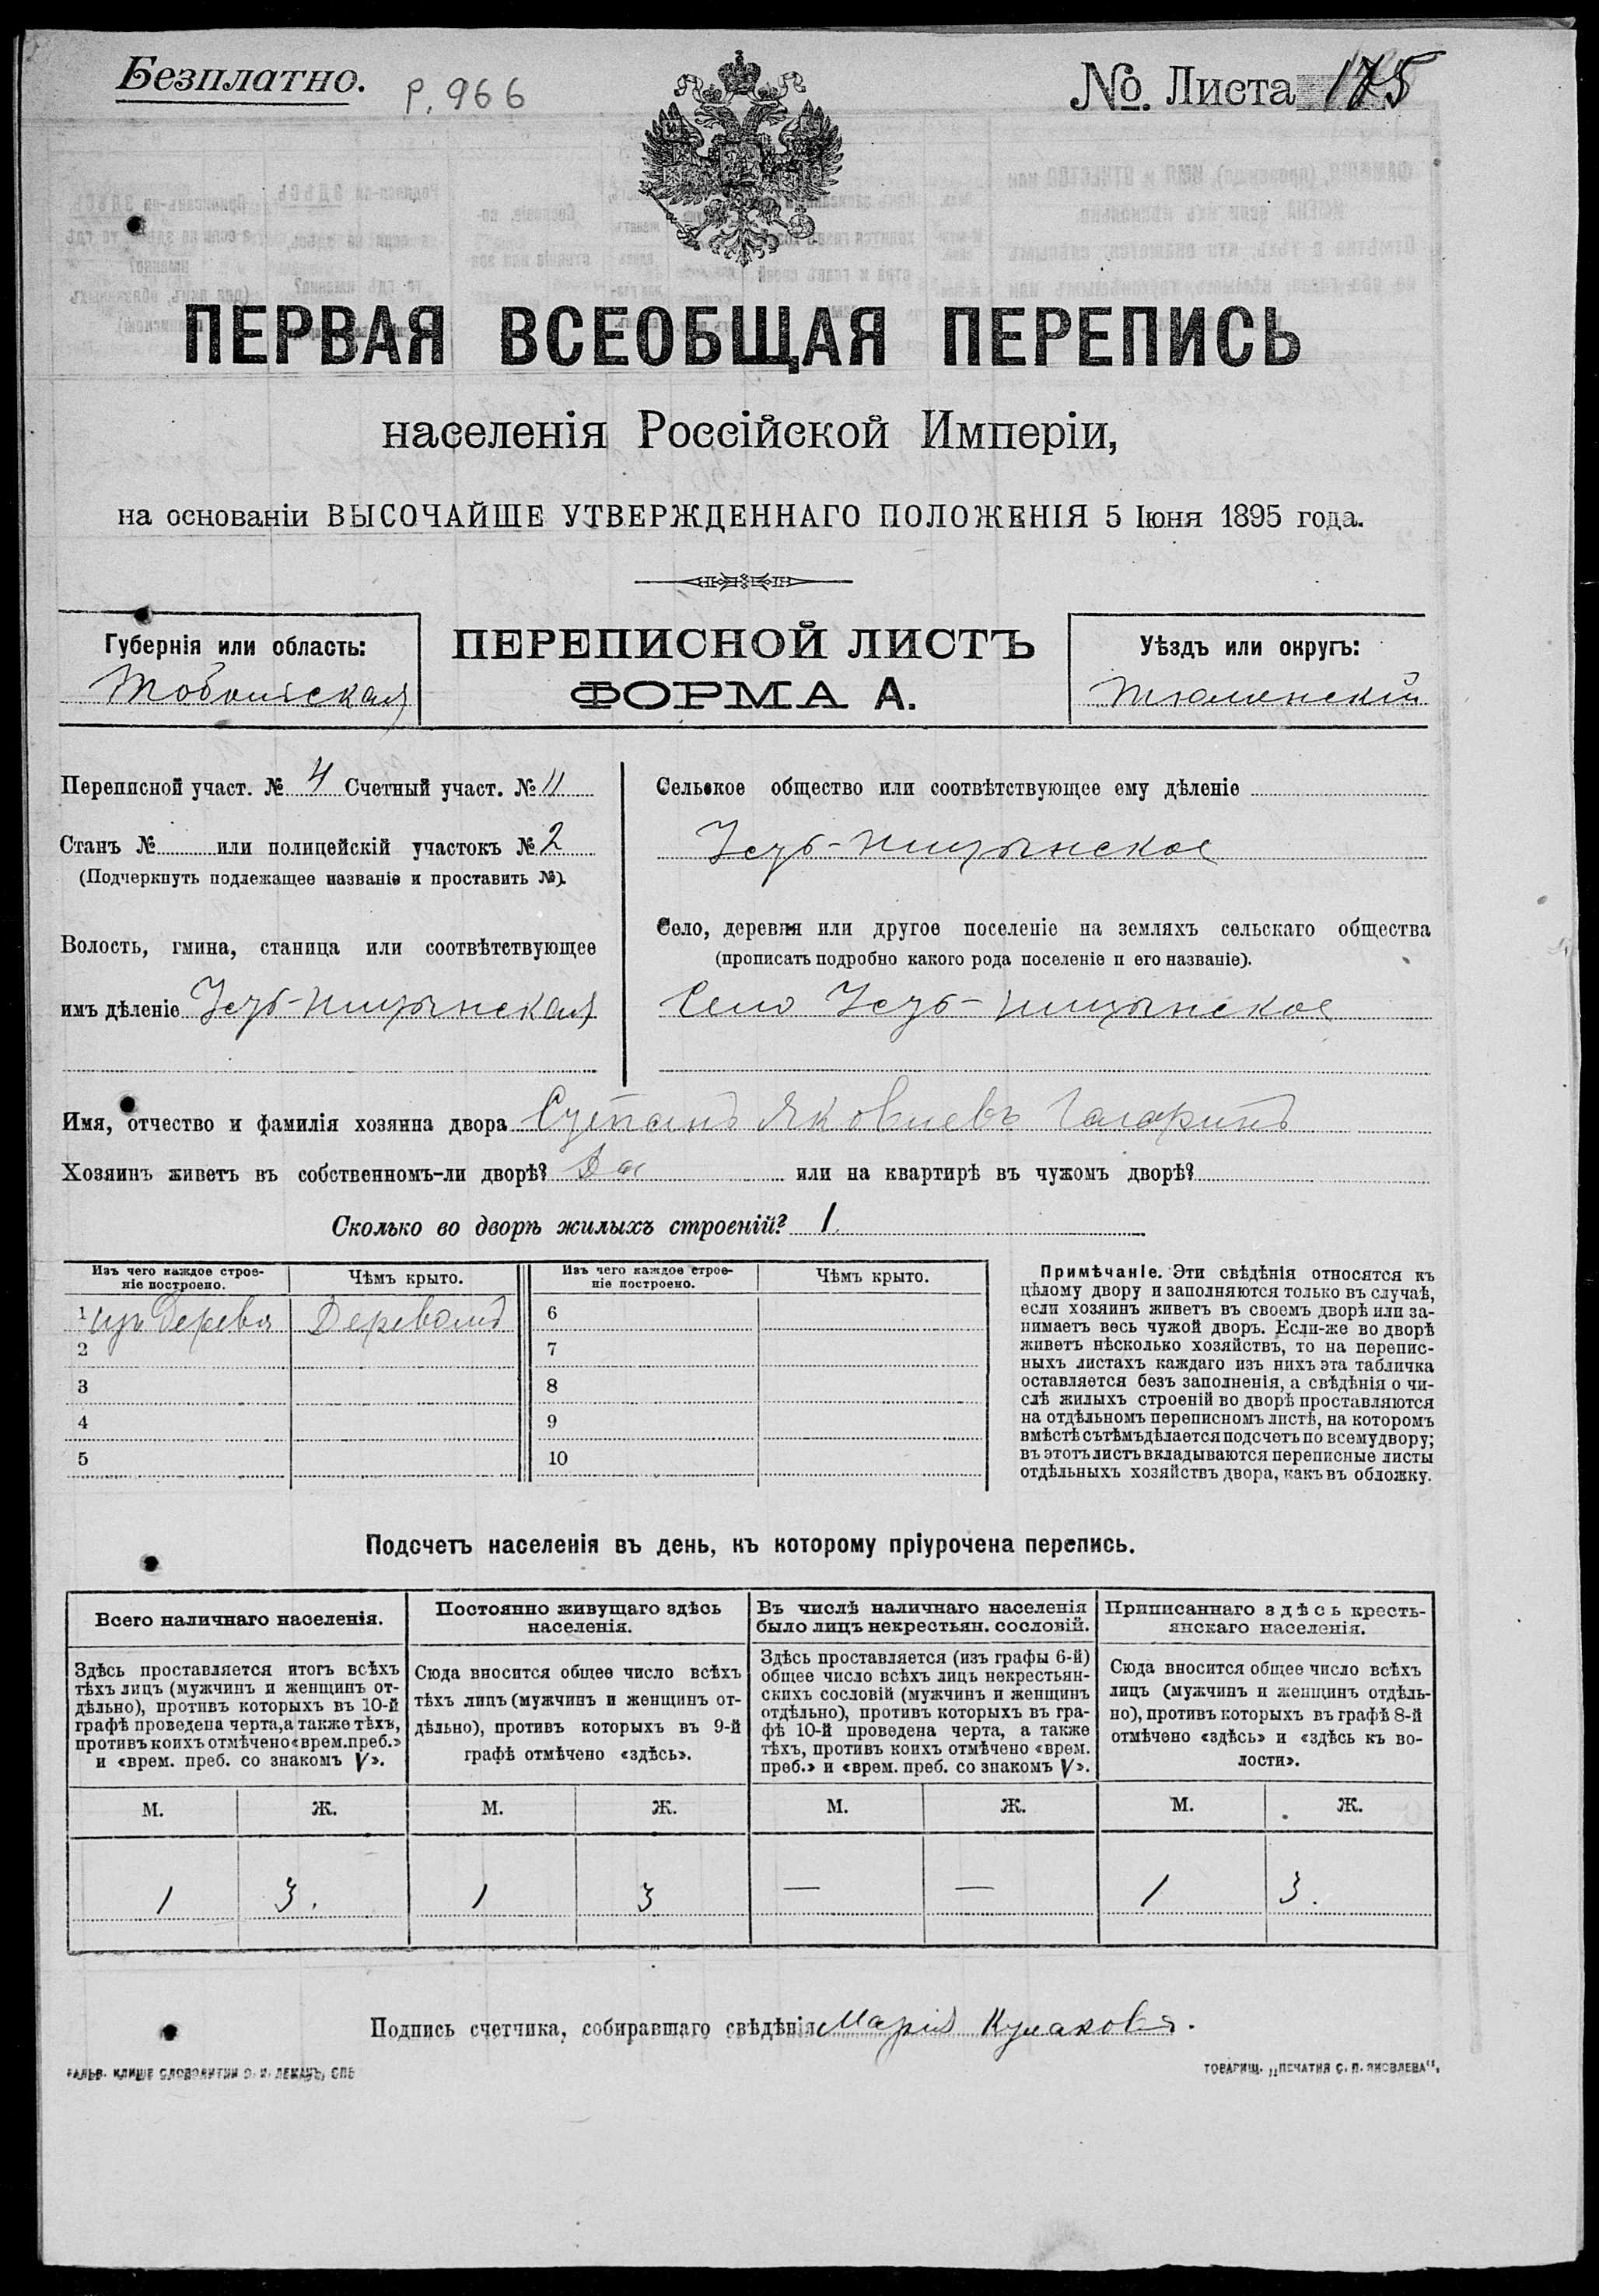 Безплатно.
Р. 966
№. Листа 175
ПЕРВАЯ ВСЕОБЩАЯ ПЕРЕПИСЬ
населенія Россійской Имперіи,
на основаніи ВЫСОЧАЙШЕ УТВЕРЖДЕННАГО ПОЛОЖЕНІЯ 5 Іюня 1895 года.
Губернія или область:
Тобольская
ПЕРЕПИСНОЙ ЛИСТЪ
ФОРМА А.
Уѣздъ или округъ:
Тюменскій
Переписной участ. № 4 Счетный участ. № 11
Станъ № или полицейскій участокъ № 2
(Подчеркнуть подлежащее названіе и проставить №).
Волость, гмина, станица или соотвѣтствующее
имъ дѣленіе Усть-Ницынская
Сельское общество или соотвѣтствующее ему дѣленіе
Усть-Ницынское
Село, деревня или другое поселеніе на земляхъ сельскаго общества
(прописать подробно какого рода поселеніе и его названіе).
Село Усть-Ницынское
Имя, отчество и фамилія хозяина двора Степанъ Яковлевъ Гагаринъ
Хозяинъ живетъ въ собственномъ-ли дворѣ? Да или на квартирѣ въ чужомъ дворѣ?
Сколько во дворѣ жилыхъ строеній? 1
Изъ чего каждое строе-
ніе построено.
Чѣмъ крыто.
1 изъ дерева Деревомъ
2
3
4
5
Изъ чего каждое строе-
ніе построено.
Чѣмъ крыто.
6
7
8
9
10
Примѣчаніе. Эти свѣдѣнія относятся къ
цѣлому двору и заполняются только въ случаѣ,
если хозяинъ живетъ въ своемъ дворѣ или за-
нимаетъ весь чужой дворъ. Если-же во дворѣ
живетъ нѣсколько хозяйствъ, то на перепис-
ныхъ листахъ каждаго изъ нихъ эта табличка
оставляется безъ заполненія, а свѣдѣнія о чи-
слѣ жилыхъ строеній во дворѣ проставляются
на отдѣльномъ переписномъ листѣ, на которомъ
вмѣстѣ съ тѣмъ дѣлается подсчетъ по всему двору;
въ этотъ листъ вкладываются переписные листы
отдѣльныхъ хозяйствъ двора, какъ въ обложку.
Подсчетъ населенія въ день, къ которому пріурочена перепись.
Всего наличнаго населенія.
Здѣсь проставляется итогъ всѣхъ
тѣхъ лицъ (мужчинъ и женщинъ от-
дѣльно), противъ которыхъ въ 10-й
графѣ проведена черта, а также тѣхъ,
противъ коихъ отмѣчено «врем. преб.»
и «врем. преб. со знакомъ V».
М. Ж.
1 3.
Постоянно живущаго здѣсь
населенія.
Сюда вносится общее число всѣхъ
тѣхъ лицъ (мужчинъ и женщинъ от-
дѣльно), противъ которыхъ въ 9-й
графѣ отмѣчено «здѣсь».
М. Ж.
1 3
Въ числѣ наличнаго населенія
было лицъ некрестьян. сословій.
Здѣсь проставляется (изъ графы 6-й)
общее число всѣхъ лицъ некрестьян-
скихъ сословій (мужчинъ и женщинъ
отдѣльно), противъ которыхъ въ гра-
фѣ 10-й проведена черта, а также
тѣхъ, противъ коихъ отмѣчено «врем.
преб.» и «врем. преб. со знакомъ V».
М. Ж.
— —
Приписаннаго здѣсь кресть-
янскаго населенія.
Сюда вносится общее число всѣхъ
лицъ (мужчинъ и женщинъ отдѣль-
но), противъ которыхъ въ графѣ 8-й
отмѣчено «здѣсь» и «здѣсь къ во-
лости».
М. Ж.
1 3.
Подпись счетчика, собиравшаго свѣдѣнія Марія Кулакова.
ГАЛЬВ. КЛИШЕ СЛОВОЛИТНИ О. И. ЛЕМАНЪ, СПБ
ТОВАРИЩ. „ПЕЧАТНЯ С. П. ЯКОВЛЕВА“.